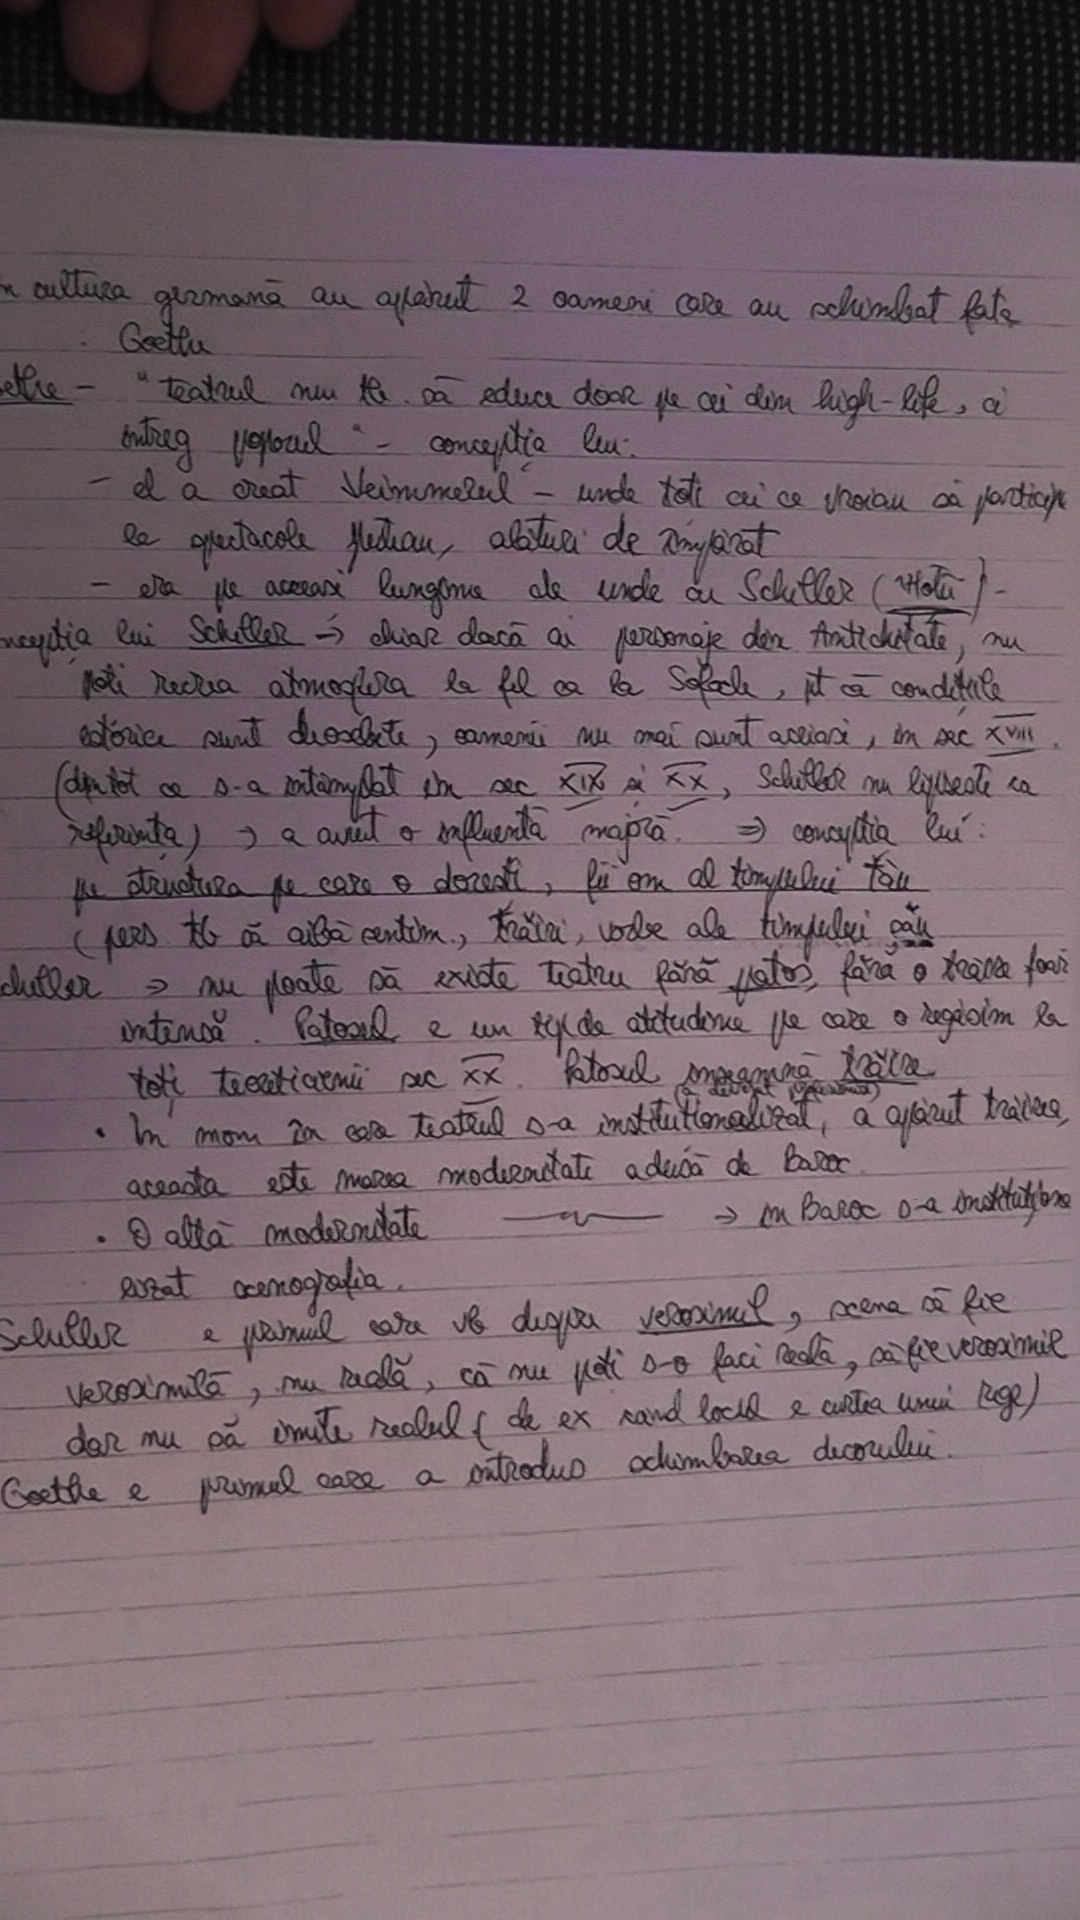 n cultura germană au apărut 2 oameni care au schimbat fața
: Goethe
ethe - "teatrul nu tb. să educe doar pe cei din high-life, ci
întreg poporul" - concepția lui.
- el a creat - unde toți cei ce vroiau să participe
la spectacole plăteau, alături de împărat
- era pe aceeași lungime de unde cu Schiller (Hoții) -
ncepția lui Schiller → chiar dacă ai personaje din Antichitate, nu
poți recrea atmosfera la fel ca la Sofocle, pt că condițiile
istorice sunt deosebite, oamenii nu mai sunt aceiași, în sec XVIII.
(din tot ce s-a întâmplat în sec XIX și XX, Schiller nu lipsește ca
referință) → a avut o influență majoră. ⇒ concepția lui:
pe structura pe care o dorești, fii om al timpului tău
(pers tb să aibă sentim., trăiri, vorbe ale timpului său
chiller ⇒ nu poate să existe teatru fără patos, fără o trăire foar
intensă. Patosul e un tip de atitudine pe care o regăsim la
toți teoreticienii sec XX. Patosul înseamnă trăire
(a devenit)
• În mom în care teatrul s-a instituționalizat, a apărut trăirea,
aceasta este marea modernitate adusă de Baroc.
• O altă modernitate → în Baroc s-a instituționa
lizat scenografia.
Schiller e primul care vb despre verosimil, scena să fie
verosimilă, nu reală, că nu poți s-o faci reală, să fie verosimil
dar nu să imite realul (de ex când locul e curtea unui rege)
Goethe e primul care a introdus schimbarea decorului.